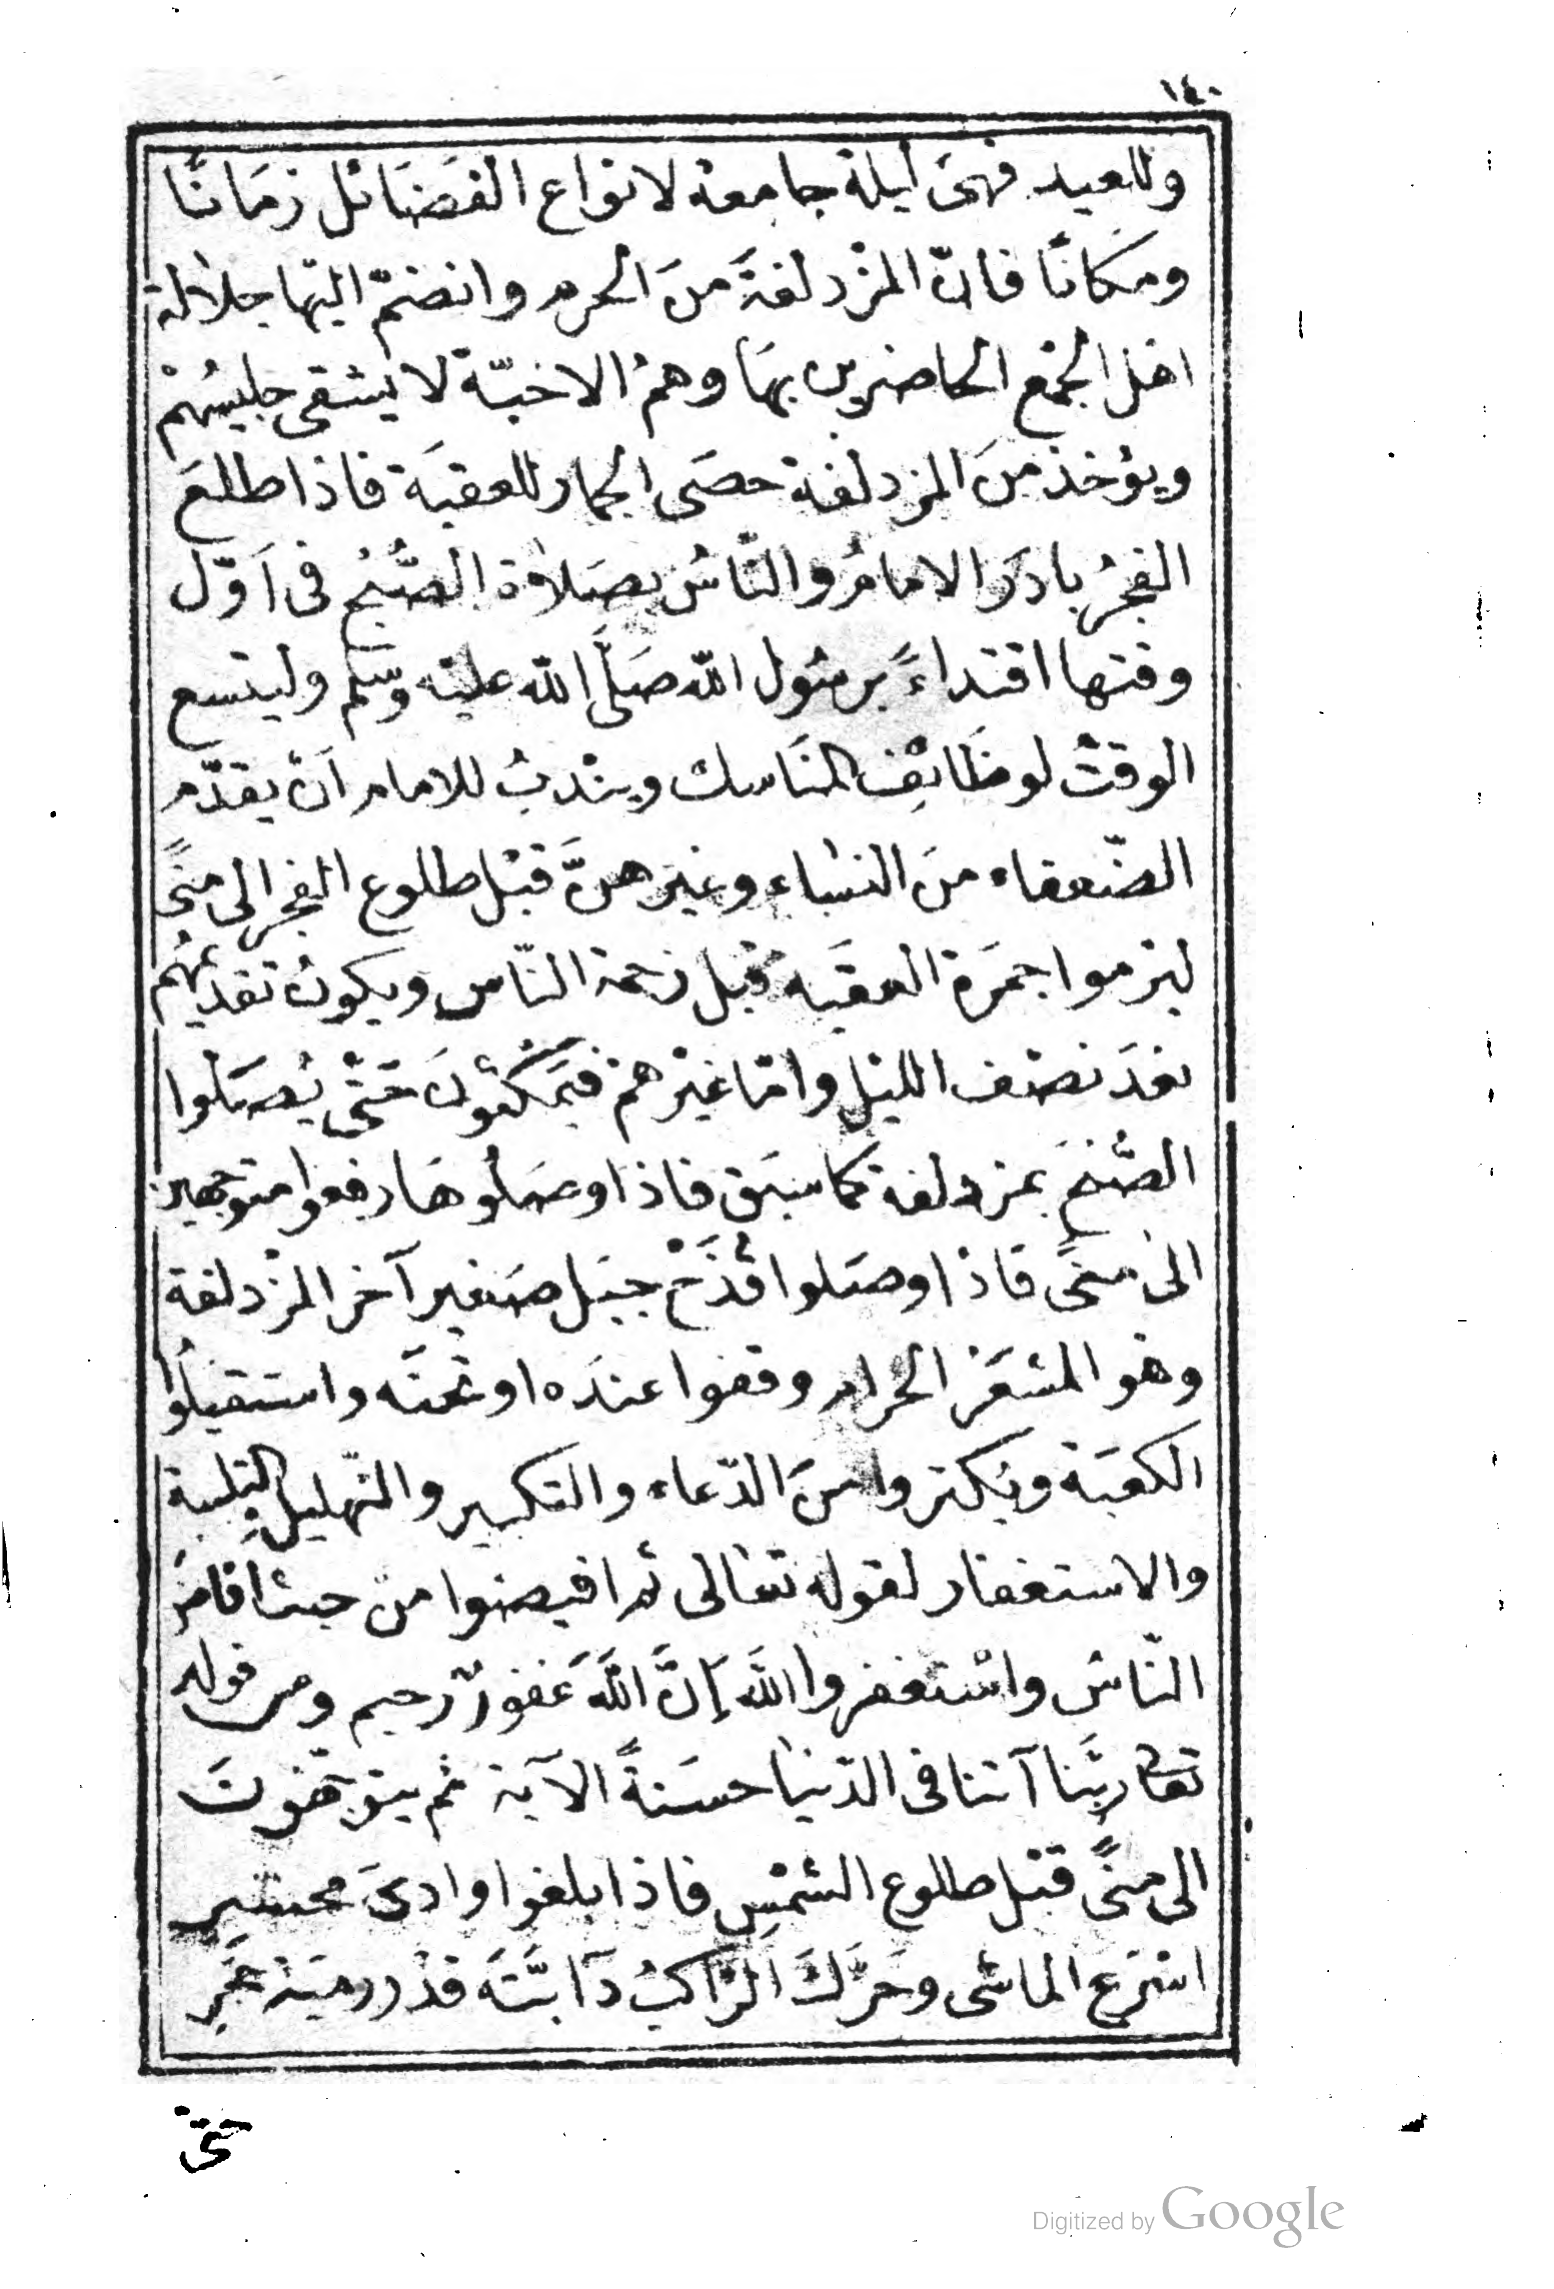 ١٤٠
وللعيد فهىَ ليلة جامعة لانواع الفَضَائل زمَانًا
ومكانًا فانّ المزْدلفةَ منَ الحرم وانضمّ اليْها جلالة
اهل الجمْع الحاضرين بهَا وهمُ الاخبّة لا يشقى جليسُهمْ
ويؤخذ منَ المزدلفة حصَى الجمار للعقبَة فاذا طلعَ
الفجرُ بادرَ الامامُ والنّاسُ بصَلاة الصُّبْح فى اَوّل
وقتها اقتداءً برسُول الله صَلَّى الله عليْه وسَلّم وليتسع
الوقتُ لوظَائِف المنَاسك وينْدبُ للامام اَنْ يقدّم
الضّعفاء منَ النسَاء وغيرهنَّ قبْل طلوع الفجر الى منىً
ليرْموا جمَرة العقبَه قبْل زحمة النّاس ويكونُ تقديمُهُم
بعْدَ نصْف الليْل وامّا غيْرهمْ فيَمكثونَ حتىّ يُصَلوا
الصُّبْحَ بمزدلفة كما سبَق فاذا وصَلُوهَا دفعوا متوجهين
الى منىً فاذا وصَلوا قُزَحْ جبَل صَغير آخر المزْدلفة
وهْو المشعَرْ الحرام وقفوا عندَه او تحتَه واستقبلُوا
الكعْبَة ويُكثروا منَ الدّعاء والتكبير والتّهليل والتّلبية
والاستغفار لقوله تعَالى ثم افيضوا منْ حيث افاضَ
النّاسُ واسْتغفروا اللهَ إنَّ اللهَ غَفورٌ رحيم ومن قوله
تعالى ربَّنا آتنا فى الدّنيَا حسَنةً الآية ثم يتوجّهونَ
الى منىً قبْل طلوع الشمْسِ فاذا بلغوا وادىَ محسّر
اسْرَع الماشى وحَرَّكَ الرَّاكبُ دَآبَّتَهُ قدْر رميَة حجَر
حتىّ
Digitized by Google